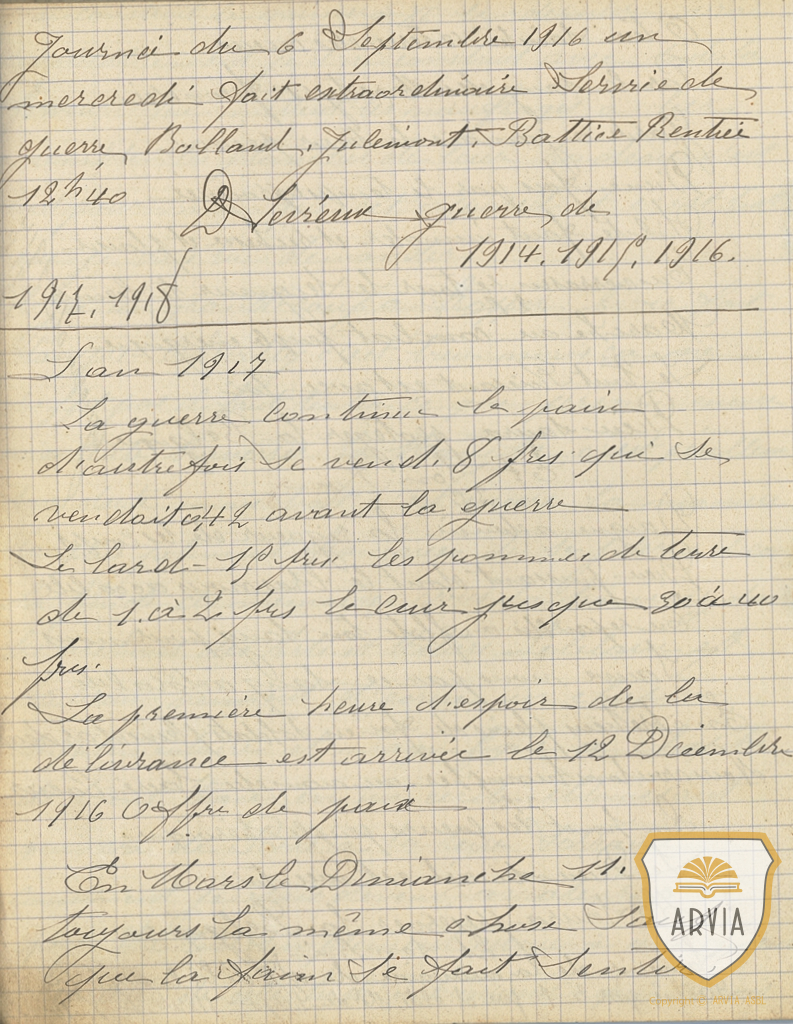 Journée du 6 Septembre 1916 un
mercredi fait extraordinaire Servie de
guerre, Bolland, Julémont, Battice Rentrée
12h40
D Levieux guerre de
1914. 1915, 1916.
1917, 1918
L'an 1917
La guerre continue le pain
d'autrefois se vend. 8 frs. qui se
vendait 0,42 avant la guerre
Le lard - 15 frs les pommes de terre
de 1. à 2 frs le cuir jusque 30 à 40
frs.
La première heure d'espoir de la
délivrance est arrivée le 12 Décembre
1916 Offre de paix
En Mars le Dimanche 11.
toujours la même chose
que la faim se fait sentir
ARVIA
Copyright © ARVIA ASBL